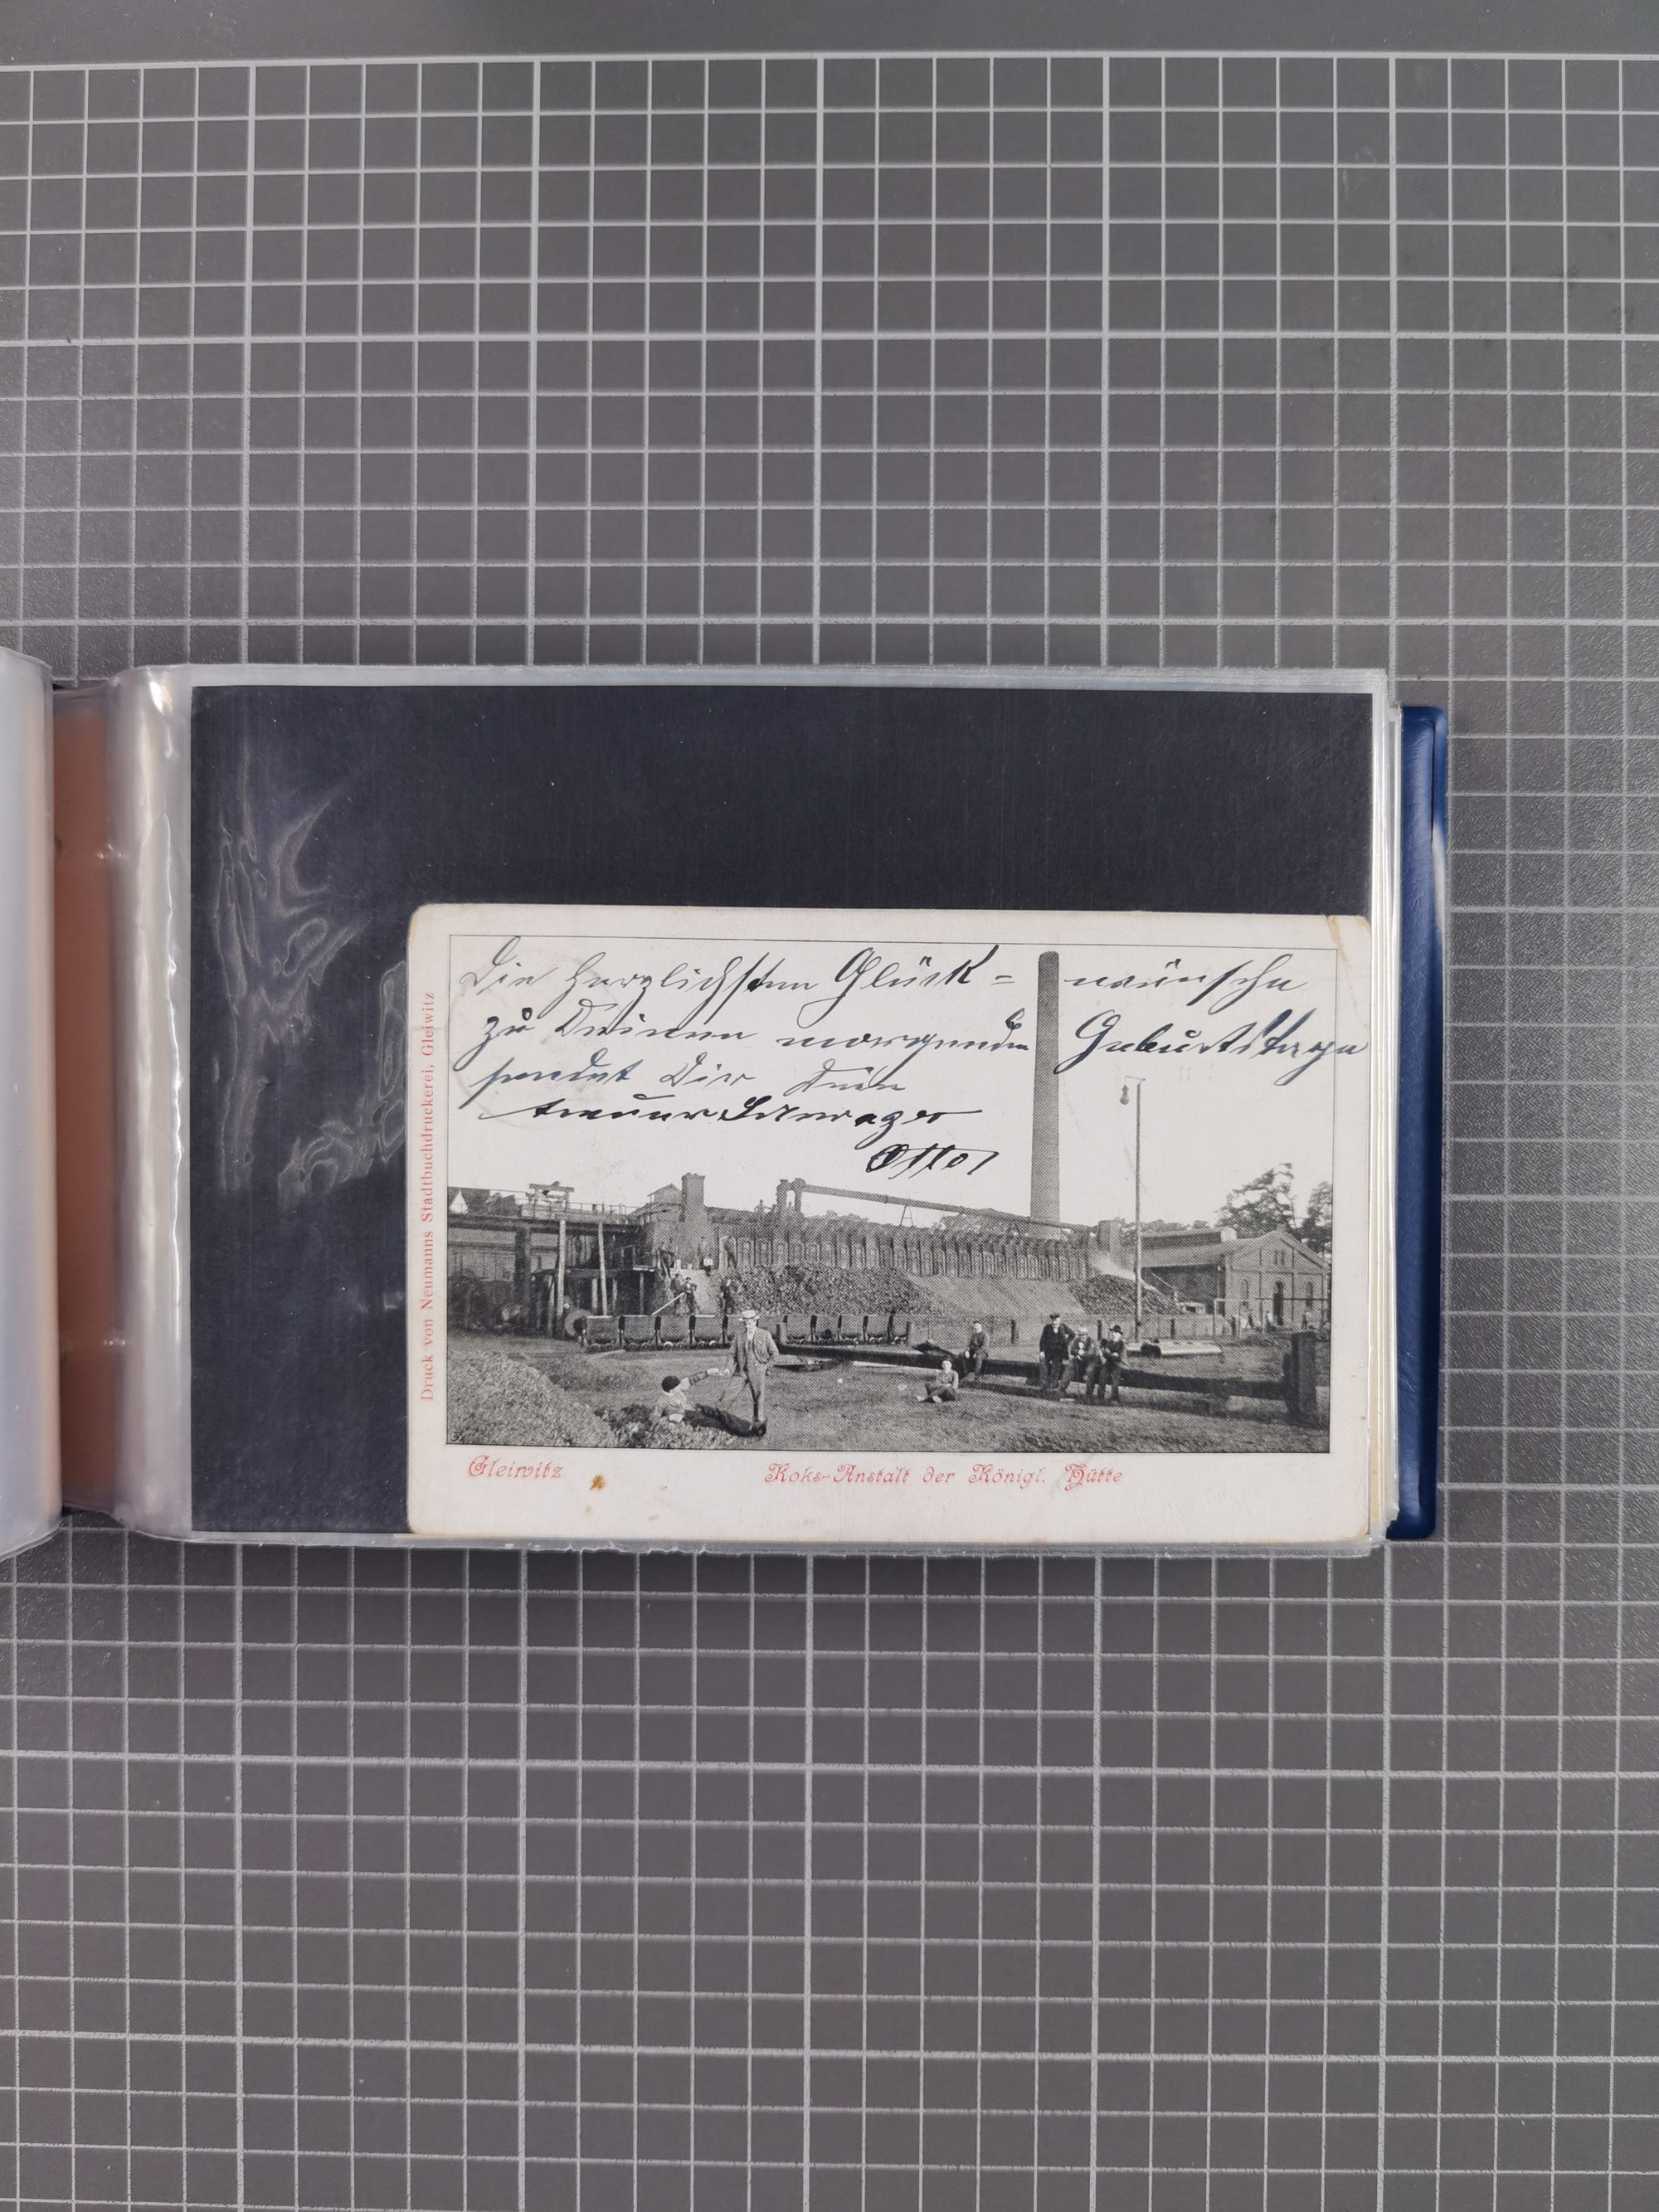 Die herzlichsten Glück= wünsche
zu Deinem morgenden Geburtstage
sendet Dir Dein
treuer Schwager
Otto
Druck von Neumanns Stadtbuchdruckerei, Gleiwitz
Gleiwitz Koks-Anstalt der Königl. Hütte